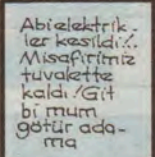 Abi elektrik-
ler kesildi!.
Misafirimiz
tuvalette
kaldı! Git
bi mum
götür ada-
ma